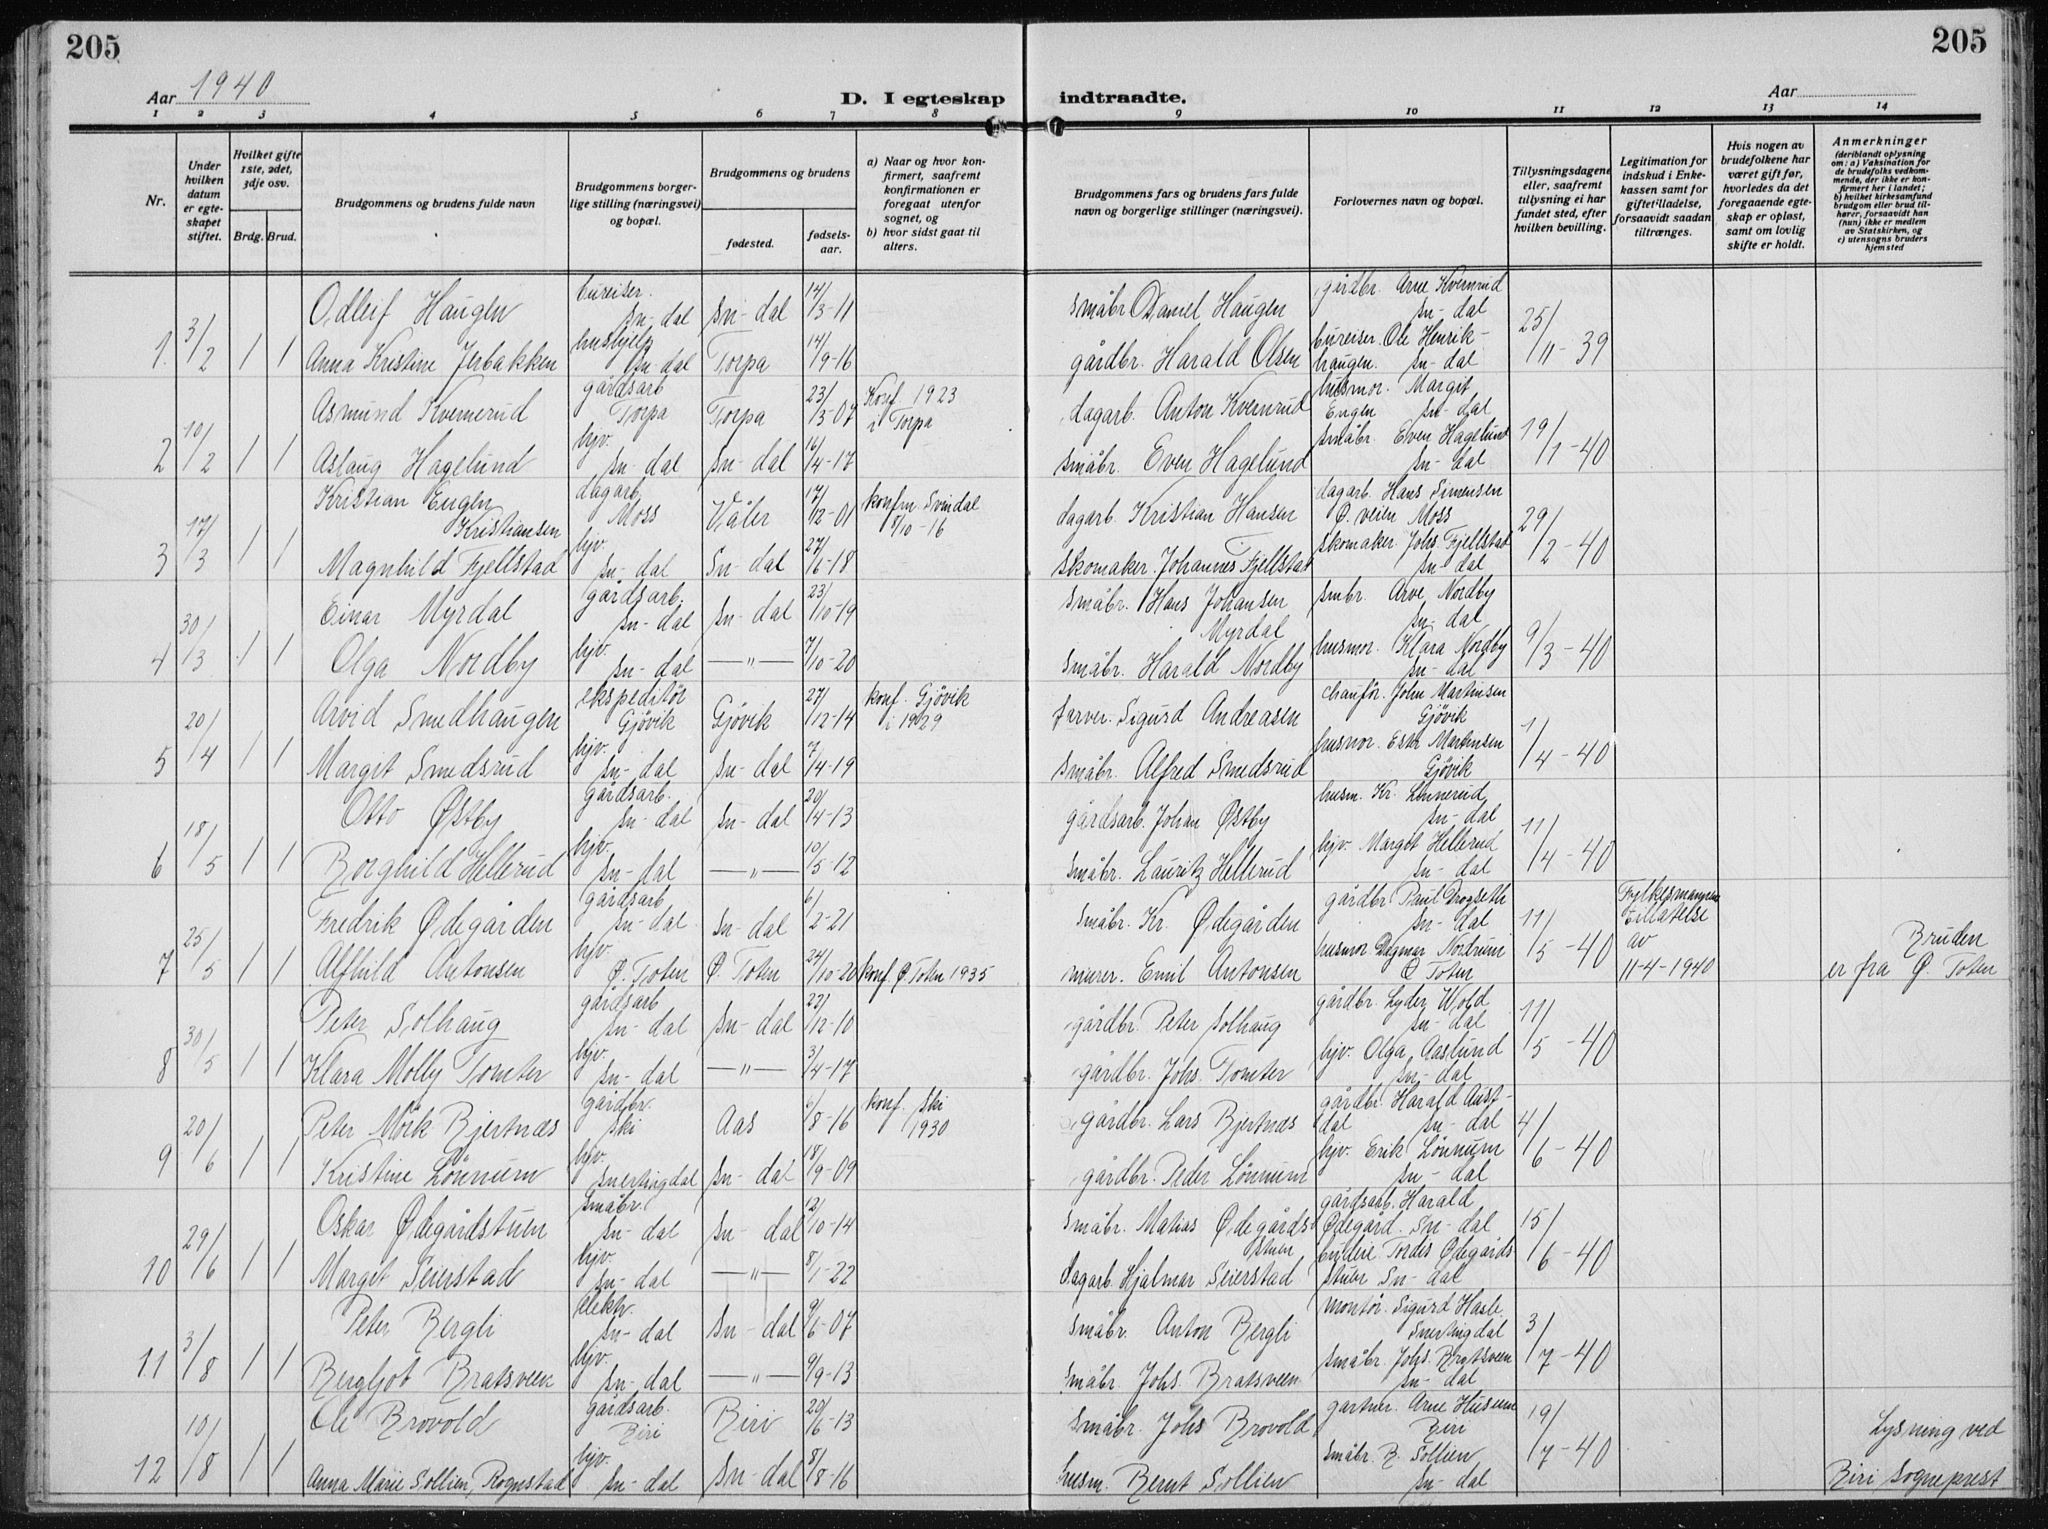 205
205
Aar 1940
D. I egteskap indtraadte.
Aar
1 2 3 4 5 6 7 8 9 10 11 12 13 14
Nr.
Under hvilken datum er egteskapet stiftet.
Hvilket gifte 1ste, 2det, 3dje osv.
Brdg. Brud.
Brudgommens og brudens fulde navn
Brudgommens borgerlige stilling (næringsvei) og bopæl.
Brudgommens og brudens
fødested.
fødselsaar.
a) Naar og hvor konfirmert, saafremt konfirmationen er foregaat utenfor sognet, og
b) hvor sidst gaat til alters.
Brudgommens fars og brudens fars fulde navn og borgerlige stillinger (næringsvei).
Forlovernes navn og bopæl.
Tillysningsdagene eller, saafremt tillysning ei har fundet sted, efter hvilken bevilling.
Legitimation for indskud i Enkekassen samt for giftetilladelse, forsaavidt saadan tiltrænges.
Hvis nogen av brudefolkene har været gift før, hvorledes da det foregaaende egteskap er opløst, samt om lovlig skifte er holdt.
Anmerkninger
(deriblandt oplysning om: a) Vaksination for de brudefolks vedkommende, der ikke er konfirmert her i landet; b) hvilket kirkesamfund brudgom eller brud tilhører, forsaavidt han (hun) ikke er medlem av Statskirken, og c) utensogns bruders hjemsted
1. 3/2 1 1
Odleif Haugen bureiser. Sn-dal Sn-dal 14/3-11 småbr. Daniel Haugen gårdbr. Arne Kvernrud Sn-dal 25/11-39
Anna Kristine Jerbakken hushjelp Sn-dal Torpa 14/9-16 gårdbr. Harald Olsen bureiser Ole Henrikhaugen. Sn-dal
2 10/2 1 1
Asmund Kvernerud gårdsarb Torpa Torpa 23/3-07 Konf. 1923 i Torpa dagarb. Anton Kvernrud husmor. Margit Engen Sn-dal 19/1-40
Aslaug Hagelund hjv. Sn-dal Sn-dal 16/4-17 småbr. Even Hagelund småbr. Even Hagelund Sn-dal
3 17/3 1 1
Kristian Eugen Kristiansen dagarb. Moss Våler 17/12-01 konfm Svindal 8/10-16 dagarb. Kristian Hansen dagarb. Hans Simensen Ø. veien Moss 29/2-40
Magnhild Fjellstad hjv. Sn-dal Sn-dal 27/6-18 skomaker. Johannes Fjellstad skomaker. Johs. Fjellstad Sn-dal
4 30/3 1 1
Einar Myrdal gårdsarb. Sn-dal Sn-dal 23/10-19 småbr. Hans Johansen Myrdal smbr. Arve Nordby Sn-dal 9/3-40
Olga Nordby hjv. Sn-dal —"— 7/10-20 småbr. Harald Nordby husmor. Klara Nordby Sn-dal
5 20/4 1 1
Arvid Smedhaugen ekspeditør Gjövik Gjövik 27/12-14 konf. Gjövik i 1929 farver. Sigurd Andreasen chauför. John Martinsen Gjövik 1/4-40
Margit Smedsrud hjv. Sn-dal Sn-dal 7/4-19 småbr. Alfred Smedsrud husmor. Ester Martinsen Gjövik
6 18/5 1 1
Otto Østby gårdsarb. Sn-dal Sn-dal 20/4-13 gårdsarb. Johan Østby husm. Kr. Linnerud Sn-dal 11/4-40
Borghild Hellerud hjv. Sn-dal —"— 10/5-12 småbr. Lauritz Hellerud hjv. Margot Hellerud Sn-dal
7 25/5 1 1
Fredrik Ødegården gårdsarb Sn-dal Sn-dal 6/2-21 småbr. Kr. Ødegården gårdbr. Paul Drogseth Sn-dal 11/5-40 Fylkesmannens tillatelse av 11-4-1940 Bruden er fra Ø. Toten
Alfhild Antonsen hjv. Ø. Toten Ø. Toten 24/10-20 konf. Ø Toten 1935 murer. Emil Antonsen husmor Dagmar Nordrum Ø Toten
8 30/5 1 1
Peter Solhaug gårdsarb Sn-dal Sn-dal 22/12-10 gårdbr. Peter Solhaug gårdbr. Lyder Wold Sn-dal 11/5-40
Klara Molly Tomter hjv. Sn-dal —"— 3/4-17 gårdbr. Johs. Tomter hjv. Olga Aaslund Sn-dal
9 20/6 1 1
Peter Mörk Bjertnæs gårdbr. Ski Aas 6/8-16 konf. Ski 1930 gårdbr. Lars Bjertnæs gårdbr. Harald Austdal Sn-dal 4/6-40
Kristine Lönnum hjv. Snertingdal Sn-dal 18/9-09 gårdbr. Peder Lönnum hjv. Erik Lönnum Sn-dal
10 29/6 1 1
Oskar Ødegårdstuen småbr. Sn-dal Sn-dal 12/10-14 småbr. Matias Ødegårdstuen gårdsarb. Harald Ødegård. Sn-dal 15/6-40
Margit Seierstad hjv. Sn-dal —"— 8/1-22 dagarb. Hjalmar Seierstad budeie Tordis Ødegårdstuen Sn-dal
11 3/8 1 1
Peter Bergli elektr. Sn-dal Sn-dal 9/6-07 småbr. Anton Bergli montör. Sigurd Hasle Snertingdal 3/7-40
Bergljot Bratsveen hjv. Sn-dal —"— 9/9-13 småbr. Johs. Bratsveen småbr. Johs. Bratsveen Sn-dal
12 10/8 1 1
Ole Brovold gårdsarb. Biri Biri 20/6-13 småbr. Johs Brovold gartner. Arne Huseum Biri 19/7-40 Lysning ved Biri Sogneprest
Anna Marie Sollien, Rognstad hjv. Sn-dal Sn-dal 8/8-16 husm. Bernt Sollien småbr. B. Sollien Sn-dal